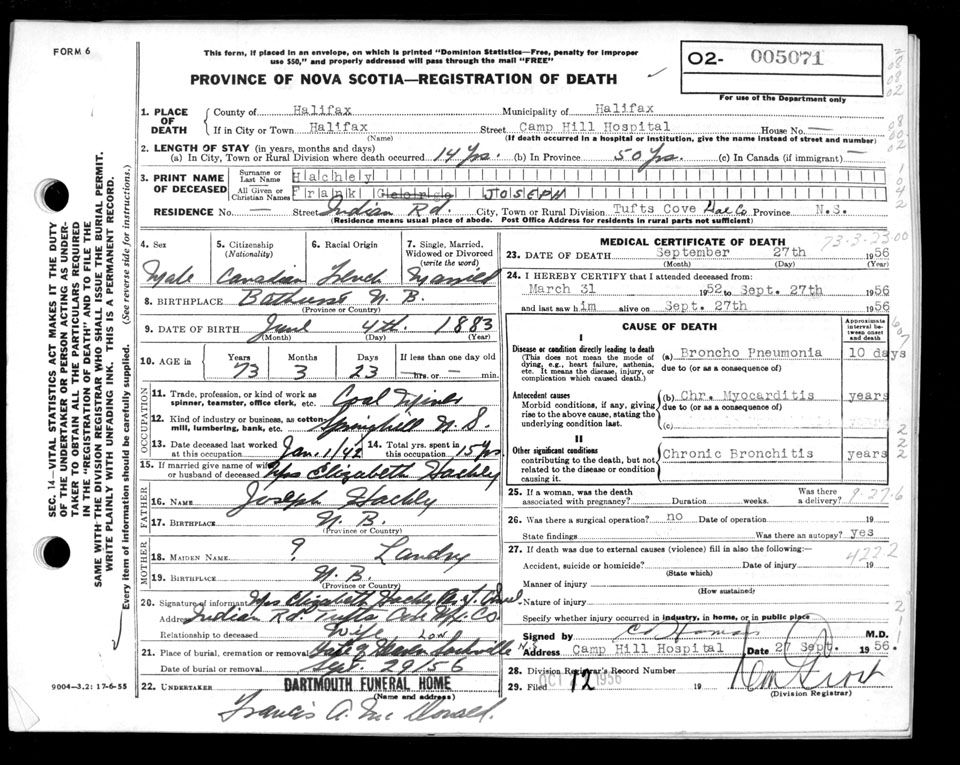 FORM 6
This form, if placed in an envelope, on which is printed "Dominion Statistics—Free, penalty for improper
use $50," and properly addressed will pass through the mail "FREE"
PROVINCE OF NOVA SCOTIA—REGISTRATION OF DEATH
02- 005071
For use of the Department only
1. PLACE OF DEATH
County of Halifax Municipality of Halifax
If in City or Town Halifax Street Camp Hill Hospital House No. —
(Name) (If death occurred in a hospital or institution, give the name instead of street and number)
2. LENGTH OF STAY (in years, months and days)
(a) In City, Town or Rural Division where death occurred 14 Yrs. (b) In Province 50 Yrs. (c) In Canada (if immigrant) —
3. PRINT NAME OF DECEASED
Surname or Last Name Hachey
All Given or Christian Names Frank George JOSEPH
RESIDENCE No. — Street Indian Rd. City, Town or Rural Division Tufts Cove Hfx Co Province N.S.
(Residence means usual place of abode. Post Office Address for residents in rural parts not sufficient)
4. Sex Male
5. Citizenship (Nationality) Canadian
6. Racial Origin French
7. Single, Married, Widowed or Divorced (write the word) Married
8. BIRTHPLACE Bathurst N.B.
(Province or Country)
9. DATE OF BIRTH June 4th. 1883
(Month) (Day) (Year)
10. AGE in Years 73 Months 3 Days 23 If less than one day old — hrs. or — min.
OCCUPATION
11. Trade, profession, or kind of work as spinner, teamster, office clerk, etc. Coal Miner
12. Kind of industry or business, as cotton mill, lumbering, bank, etc. Springhill N.S.
13. Date deceased last worked at this occupation Jan. 1/42 14. Total yrs. spent in this occupation 15 Yrs
15. If married give name of wife or husband of deceased Mrs Elizabeth Hachey
FATHER
16. NAME Joseph Hachey
17. BIRTHPLACE N.B.
(Province or Country)
MOTHER
18. MAIDEN NAME ? Landry
19. BIRTHPLACE N.B.
(Province or Country)
20. Signature of informant Mrs Elizabeth Hachey
Address Indian Rd. Tufts Cove Hfx. Co.
Relationship to deceased Wife
21. Place of burial, cremation or removal Sackville
Date of burial or removal Sept. 29/56
22. UNDERTAKER DARTMOUTH FUNERAL HOME
(Name and address)
Francis A. Mc Donald.
9004—3.2: 17-6-55
SEC. 14—VITAL STATISTICS ACT MAKES IT THE DUTY
OF THE UNDERTAKER OR PERSON ACTING AS UNDER-
TAKER TO OBTAIN ALL THE PARTICULARS REQUIRED
IN THE "REGISTRATION OF DEATH" AND TO FILE THE
SAME WITH THE DIVISION REGISTRAR WHO SHALL ISSUE THE BURIAL PERMIT.
WRITE PLAINLY WITH UNFADING INK. THIS IS A PERMANENT RECORD.
Every item of information should be carefully supplied. (See reverse side for instructions.)
MEDICAL CERTIFICATE OF DEATH
73-3-23
23. DATE OF DEATH September 27th 1956
(Month) (Day) (Year)
24. I HEREBY CERTIFY that I attended deceased from:
March 31 1952 to Sept. 27th 1956
and last saw him alive on Sept. 27th 1956
CAUSE OF DEATH
Approximate interval between onset and death
I
Disease or condition directly leading to death
(This does not mean the mode of dying, e.g., heart failure, asthenia, etc. It means the disease, injury, or complication which caused death.)
(a) Broncho Pneumonia 10 days
due to (or as a consequence of)
Antecedent causes
Morbid conditions, if any, giving rise to the above cause, stating the underlying condition last.
(b) Chr. Myocarditis years
due to (or as a consequence of)
(c)
II
Other significant conditions
contributing to the death, but not related to the disease or condition causing it.
Chronic Bronchitis years
25. If a woman, was the death associated with pregnancy? Duration weeks. Was there a delivery?
9-27-6
26. Was there a surgical operation? no Date of operation 19
State findings Was there an autopsy? yes
27. If death was due to external causes (violence) fill in also the following:—
4222
Accident, suicide or homicide? Date of injury 19
(State which)
Manner of injury
(How sustained)
Nature of injury
Specify whether injury occurred in industry, in home, or in public place
Signed by M.D.
Address Camp Hill Hospital Date 27 Sept. 1956.
28. Division Registrar's Record Number
29. Filed OCT 12 1956 19
(Division Registrar)